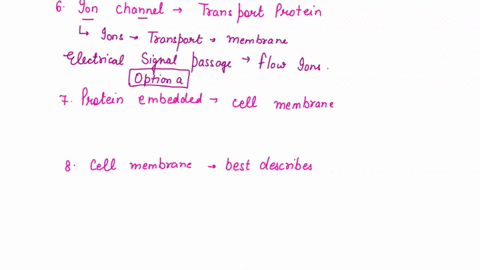 6. Ion channel → Transport Protein
↳ Ions → Transport → membrane
Electrical Signal passage → flow Ions.
Option a
7. Protein embedded → cell membrane
8. Cell membrane → best describes